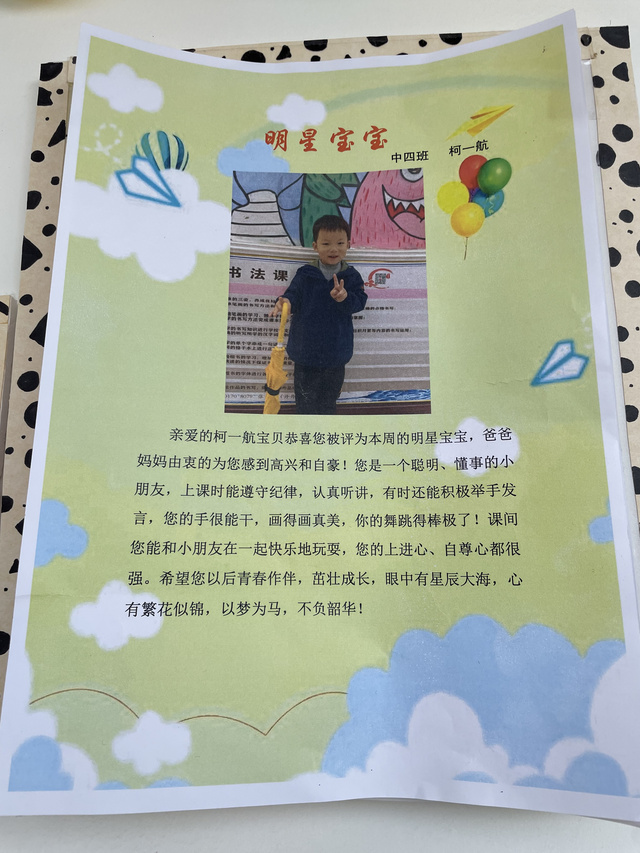 明星宝宝
中四班 柯一航
书法课
亲爱的柯一航宝贝恭喜您被评为本周的明星宝宝，爸爸
妈妈由衷的为您感到高兴和自豪！您是一个聪明、懂事的小
朋友，上课时能遵守纪律，认真听讲，有时还能积极举手发
言，您的手很能干，画得画真美，你的舞跳得棒极了！课间
您能和小朋友在一起快乐地玩耍，您的上进心、自尊心都很
强。希望您以后青春作伴，茁壮成长，眼中有星辰大海，心
有繁花似锦，以梦为马，不负韶华！